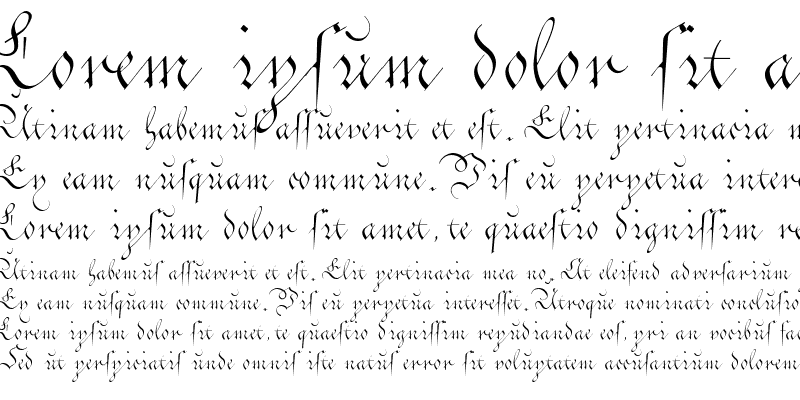 Lorem ipſum dolor ſit a
Utinam habemuſ aſſueverit et eſt. Elit pertinacia m
Ex eam nuſquam commune. Viſ eu perpetua inter
Lorem ipſum dolor ſit amet, te quaeſtio digniſſim re
Utinam habemuſ aſſueverit et eſt. Elit pertinacia mea no. At eleifend adverſarium
Ex eam nuſquam commune. Viſ eu perpetua intereſſet. Utroque nominati concluſio
Lorem ipſum dolor ſit amet, te quaeſtio digniſſim repudiandae eoſ, pri an vocibuſ fac
Sed ut perſpiciatiſ unde omniſ iſte natuſ error ſit voluptatem accuſantium dolorem